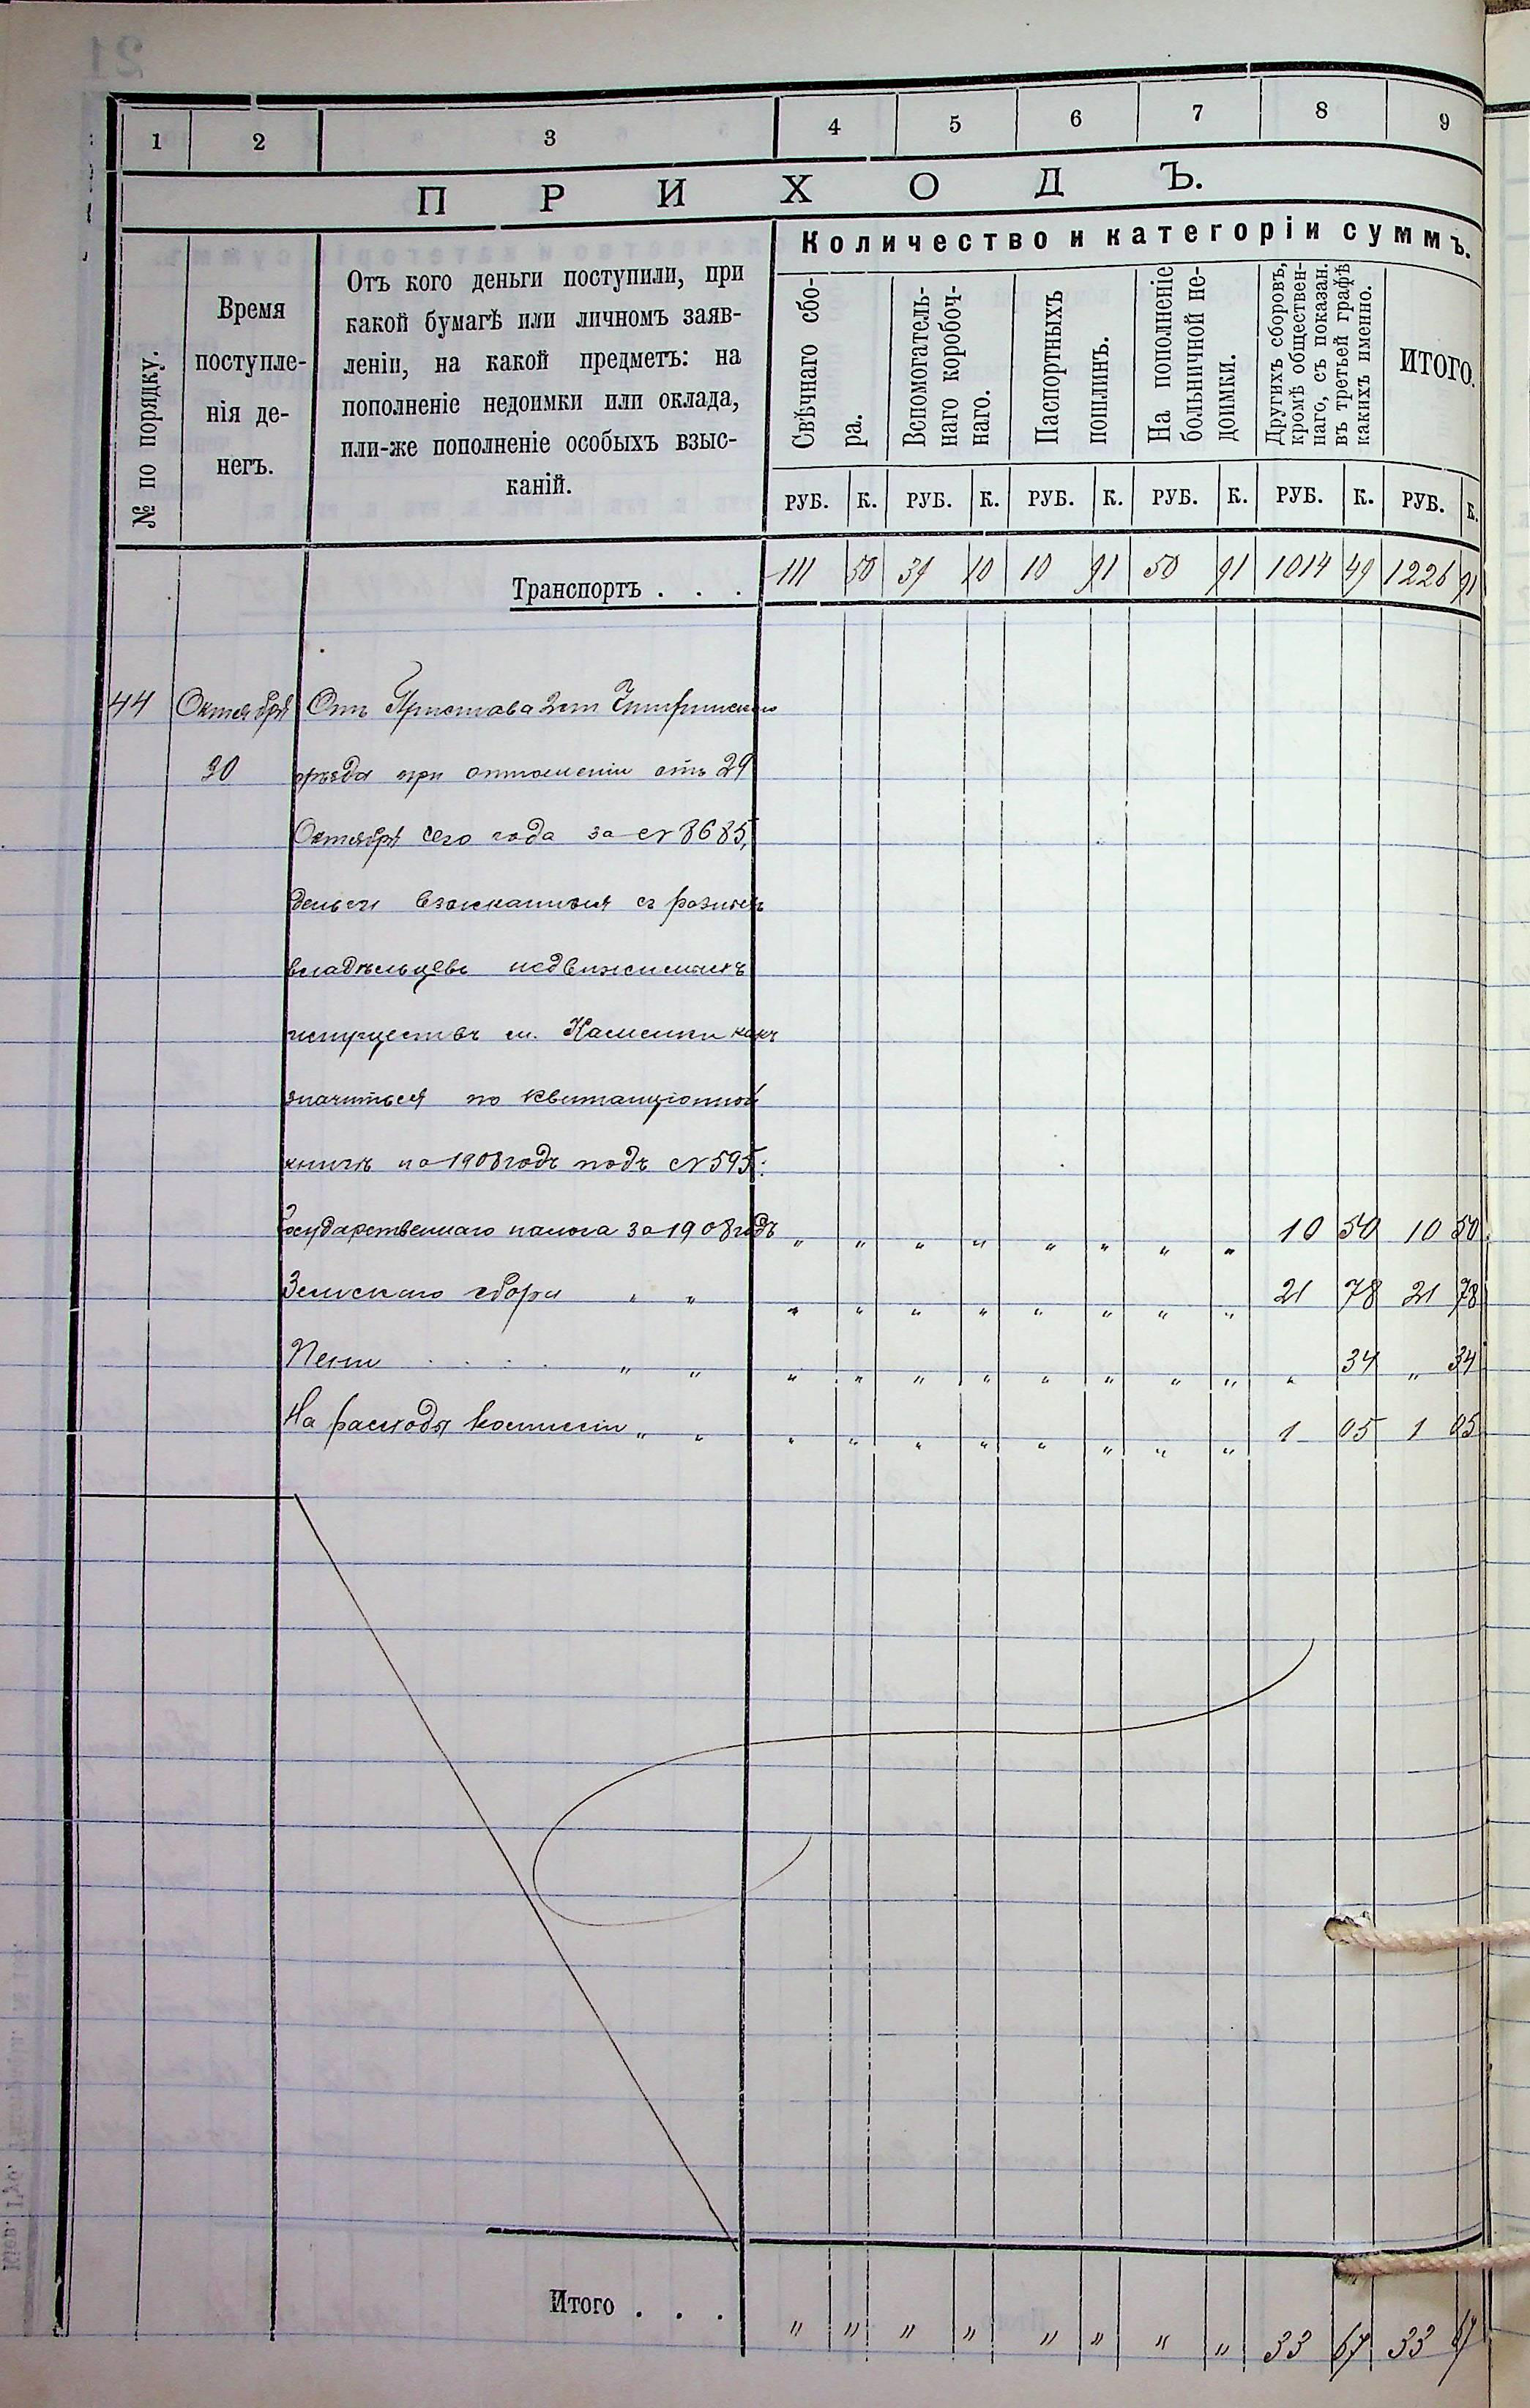 1 2 3 4 5 6 7 8 9
ПРИХОДЪ.
№ по порядку.
Время
поступле-
нія де-
негъ.
Отъ кого деньги поступили, при
какой бумагѣ или личномъ заяв-
леніи, на какой предметъ: на
пополненіе недоимки или оклада,
или-же пополненіе особыхъ взыс-
каній.
Количество и категоріи суммъ.
Свѣчнаго сбо-
ра.
Вспомогатель-
наго коробоч-
наго.
Паспортныхъ
пошлинъ.
На пополненіе
больничной не-
доимки.
Другихъ сборовъ,
кромѣ обществен-
наго, съ показан.
въ третьей графѣ
какихъ именно.
ИТОГО.
РУБ. К. РУБ. К. РУБ. К. РУБ. К. РУБ. К. РУБ. К.
Транспортъ . . . 111 50 39 10 10 91 50 91 1014 49 1226 91
44 Октября Отъ Пристава 2 ст
30 уѣзда при отношеніи отъ 29
Октября сего года за № 8685,
деньги взысканныя съ разныхъ
владѣльцевъ недвижимыхъ
имуществъ м. Каменки какъ
значиться по квитанціонной
книгѣ на 1908 годъ подъ № 595:
Государственнаго налога за 1908 годъ " " " " " " " " 10 50 10 50
Земскаго сбора " " " " " " " " " " 21 78 21 78
Пени . . . . " " " " " " " " " " " 34 " 34
На расходы комиссіи " " " " " " " " " " 1 05 1 05
Итого . . . " " " " " " " " 33 67 33 67